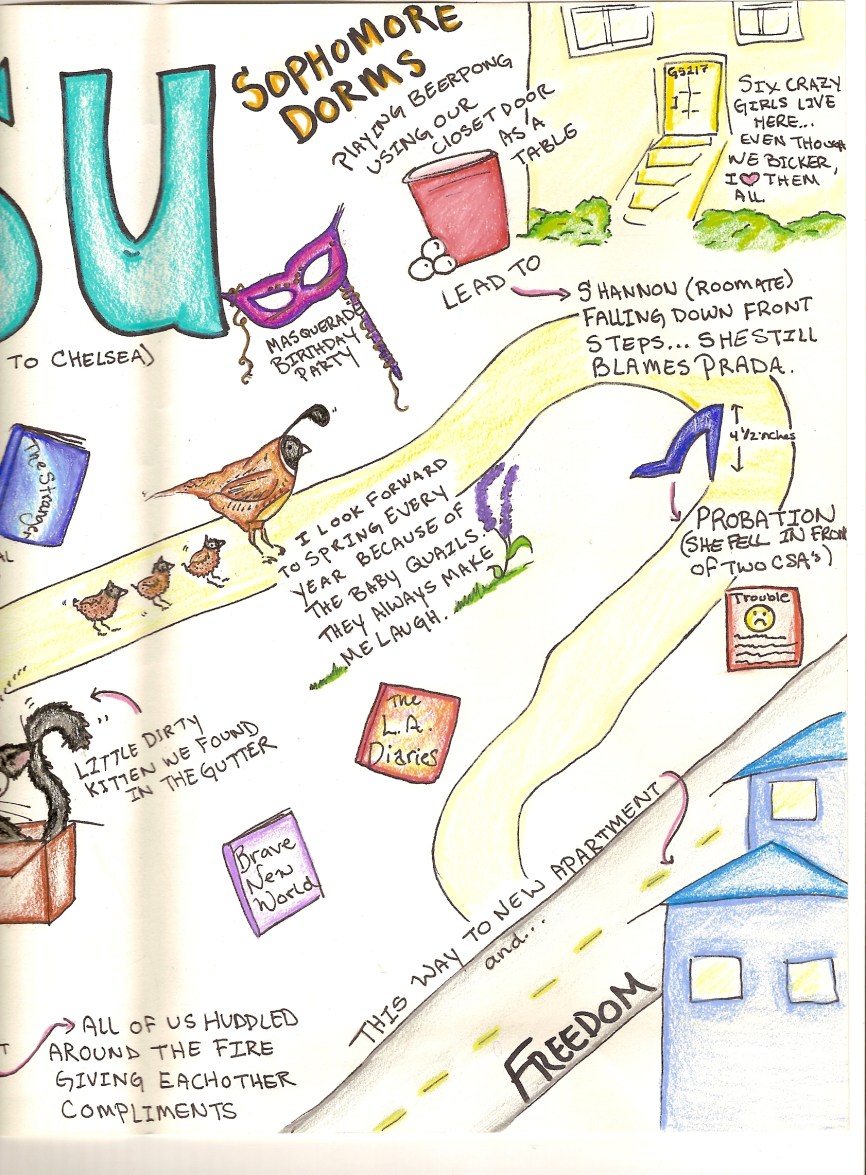 SU
SOPHOMORE
DORMS
PLAYING BEERPONG
USING OUR
CLOSET DOOR
AS A
TABLE
GS217
SIX CRAZY
GIRLS LIVE
HERE...
EVEN THOUGH
WE BICKER,
I ♥ THEM
ALL
LEAD TO
SHANNON (ROOMATE)
FALLING DOWN FRONT
STEPS... SHE STILL
BLAMES PRADA.
MASQUERADE
BIRTHDAY
PARTY
TO CHELSEA)
4 1/2 inches
The Stranger
I LOOK FORWARD
TO SPRING EVERY
YEAR BECAUSE OF
THE BABY QUAILS.
THEY ALWAYS MAKE
ME LAUGH.
PROBATION
(SHE FELL IN FRON
OF TWO CSA's)
Trouble
The
L.A.
Diaries
LITTLE DIRTY
KITTEN WE FOUND
IN THE GUTTER
Brave
New
World
THIS WAY TO NEW APARTMENT
and...
FREEDOM
ALL OF US HUDDLED
AROUND THE FIRE
GIVING EACHOTHER
COMPLIMENTS